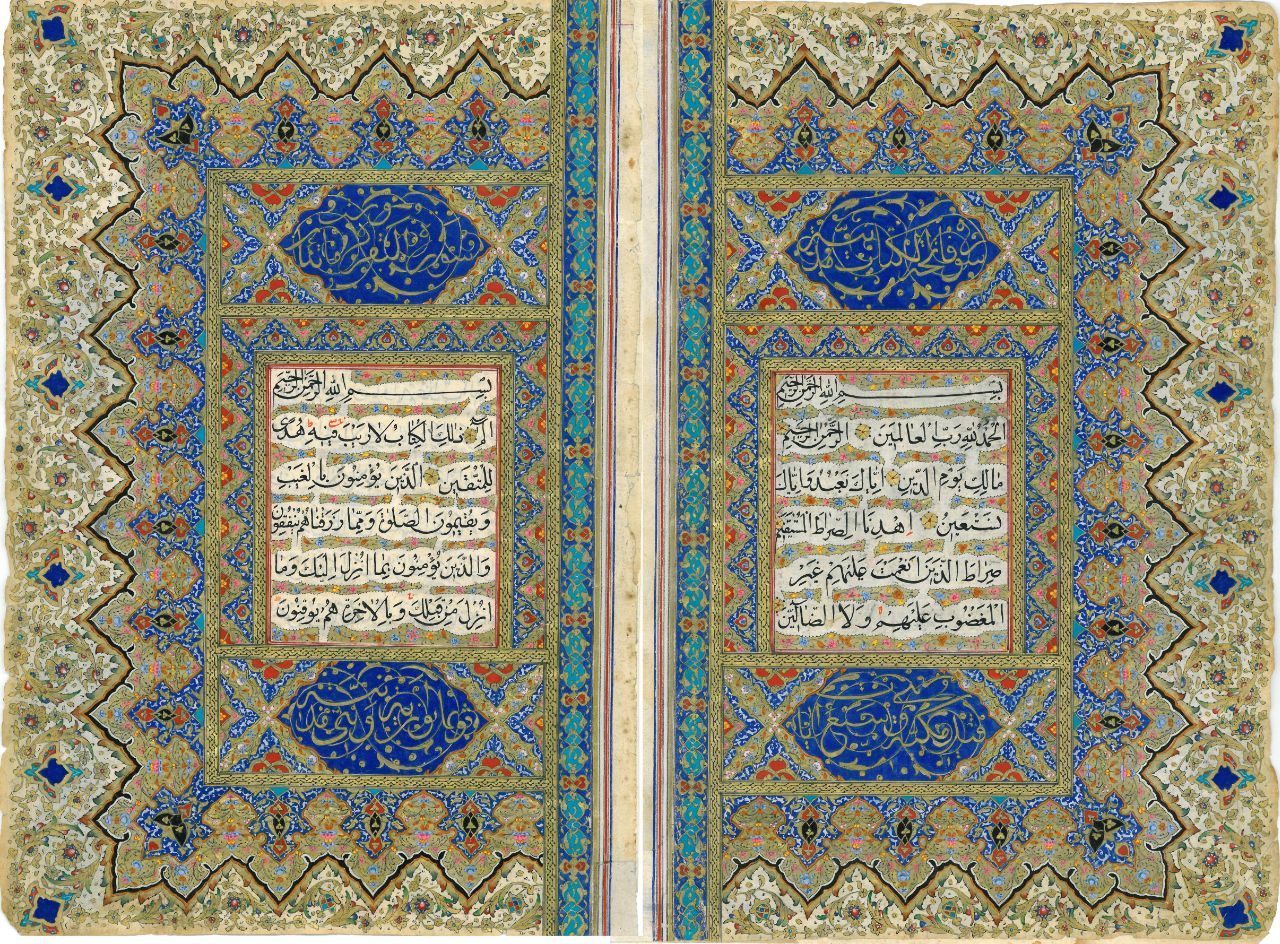 سورة فاتحة الكتاب
بِسْمِ اللهِ الرَّحْمٰنِ الرَّحِيمِ
اَلْحَمْدُ لِلّٰهِ رَبِّ الْعَالَمِينَ الرَّحْمٰنِ الرَّحِيمِ
مَالِكِ يَوْمِ الدِّينِ اِيَّاكَ نَعْبُدُ وَاِيَّاكَ
نَسْتَعِينُ اِهْدِنَا الصِّرَاطَ الْمُسْتَقِيمَ
صِرَاطَ الَّذِينَ اَنْعَمْتَ عَلَيْهِمْ غَيْرِ
الْمَغْضُوبِ عَلَيْهِمْ وَلَا الضَّالِّينَ
سورة البقرة
بِسْمِ اللهِ الرَّحْمٰنِ الرَّحِيمِ
الٓمٓ ذٰلِكَ الْكِتَابُ لَا رَيْبَ فِيهِ هُدًى
لِلْمُتَّقِينَ الَّذِينَ يُؤْمِنُونَ بِالْغَيْبِ
وَيُقِيمُونَ الصَّلٰوةَ وَمِمَّا رَزَقْنَاهُمْ يُنْفِقُونَ
وَالَّذِينَ يُؤْمِنُونَ بِمَا اُنْزِلَ اِلَيْكَ وَمَا
اُنْزِلَ مِنْ قَبْلِكَ وَبِالْاٰخِرَةِ هُمْ يُوقِنُونَ